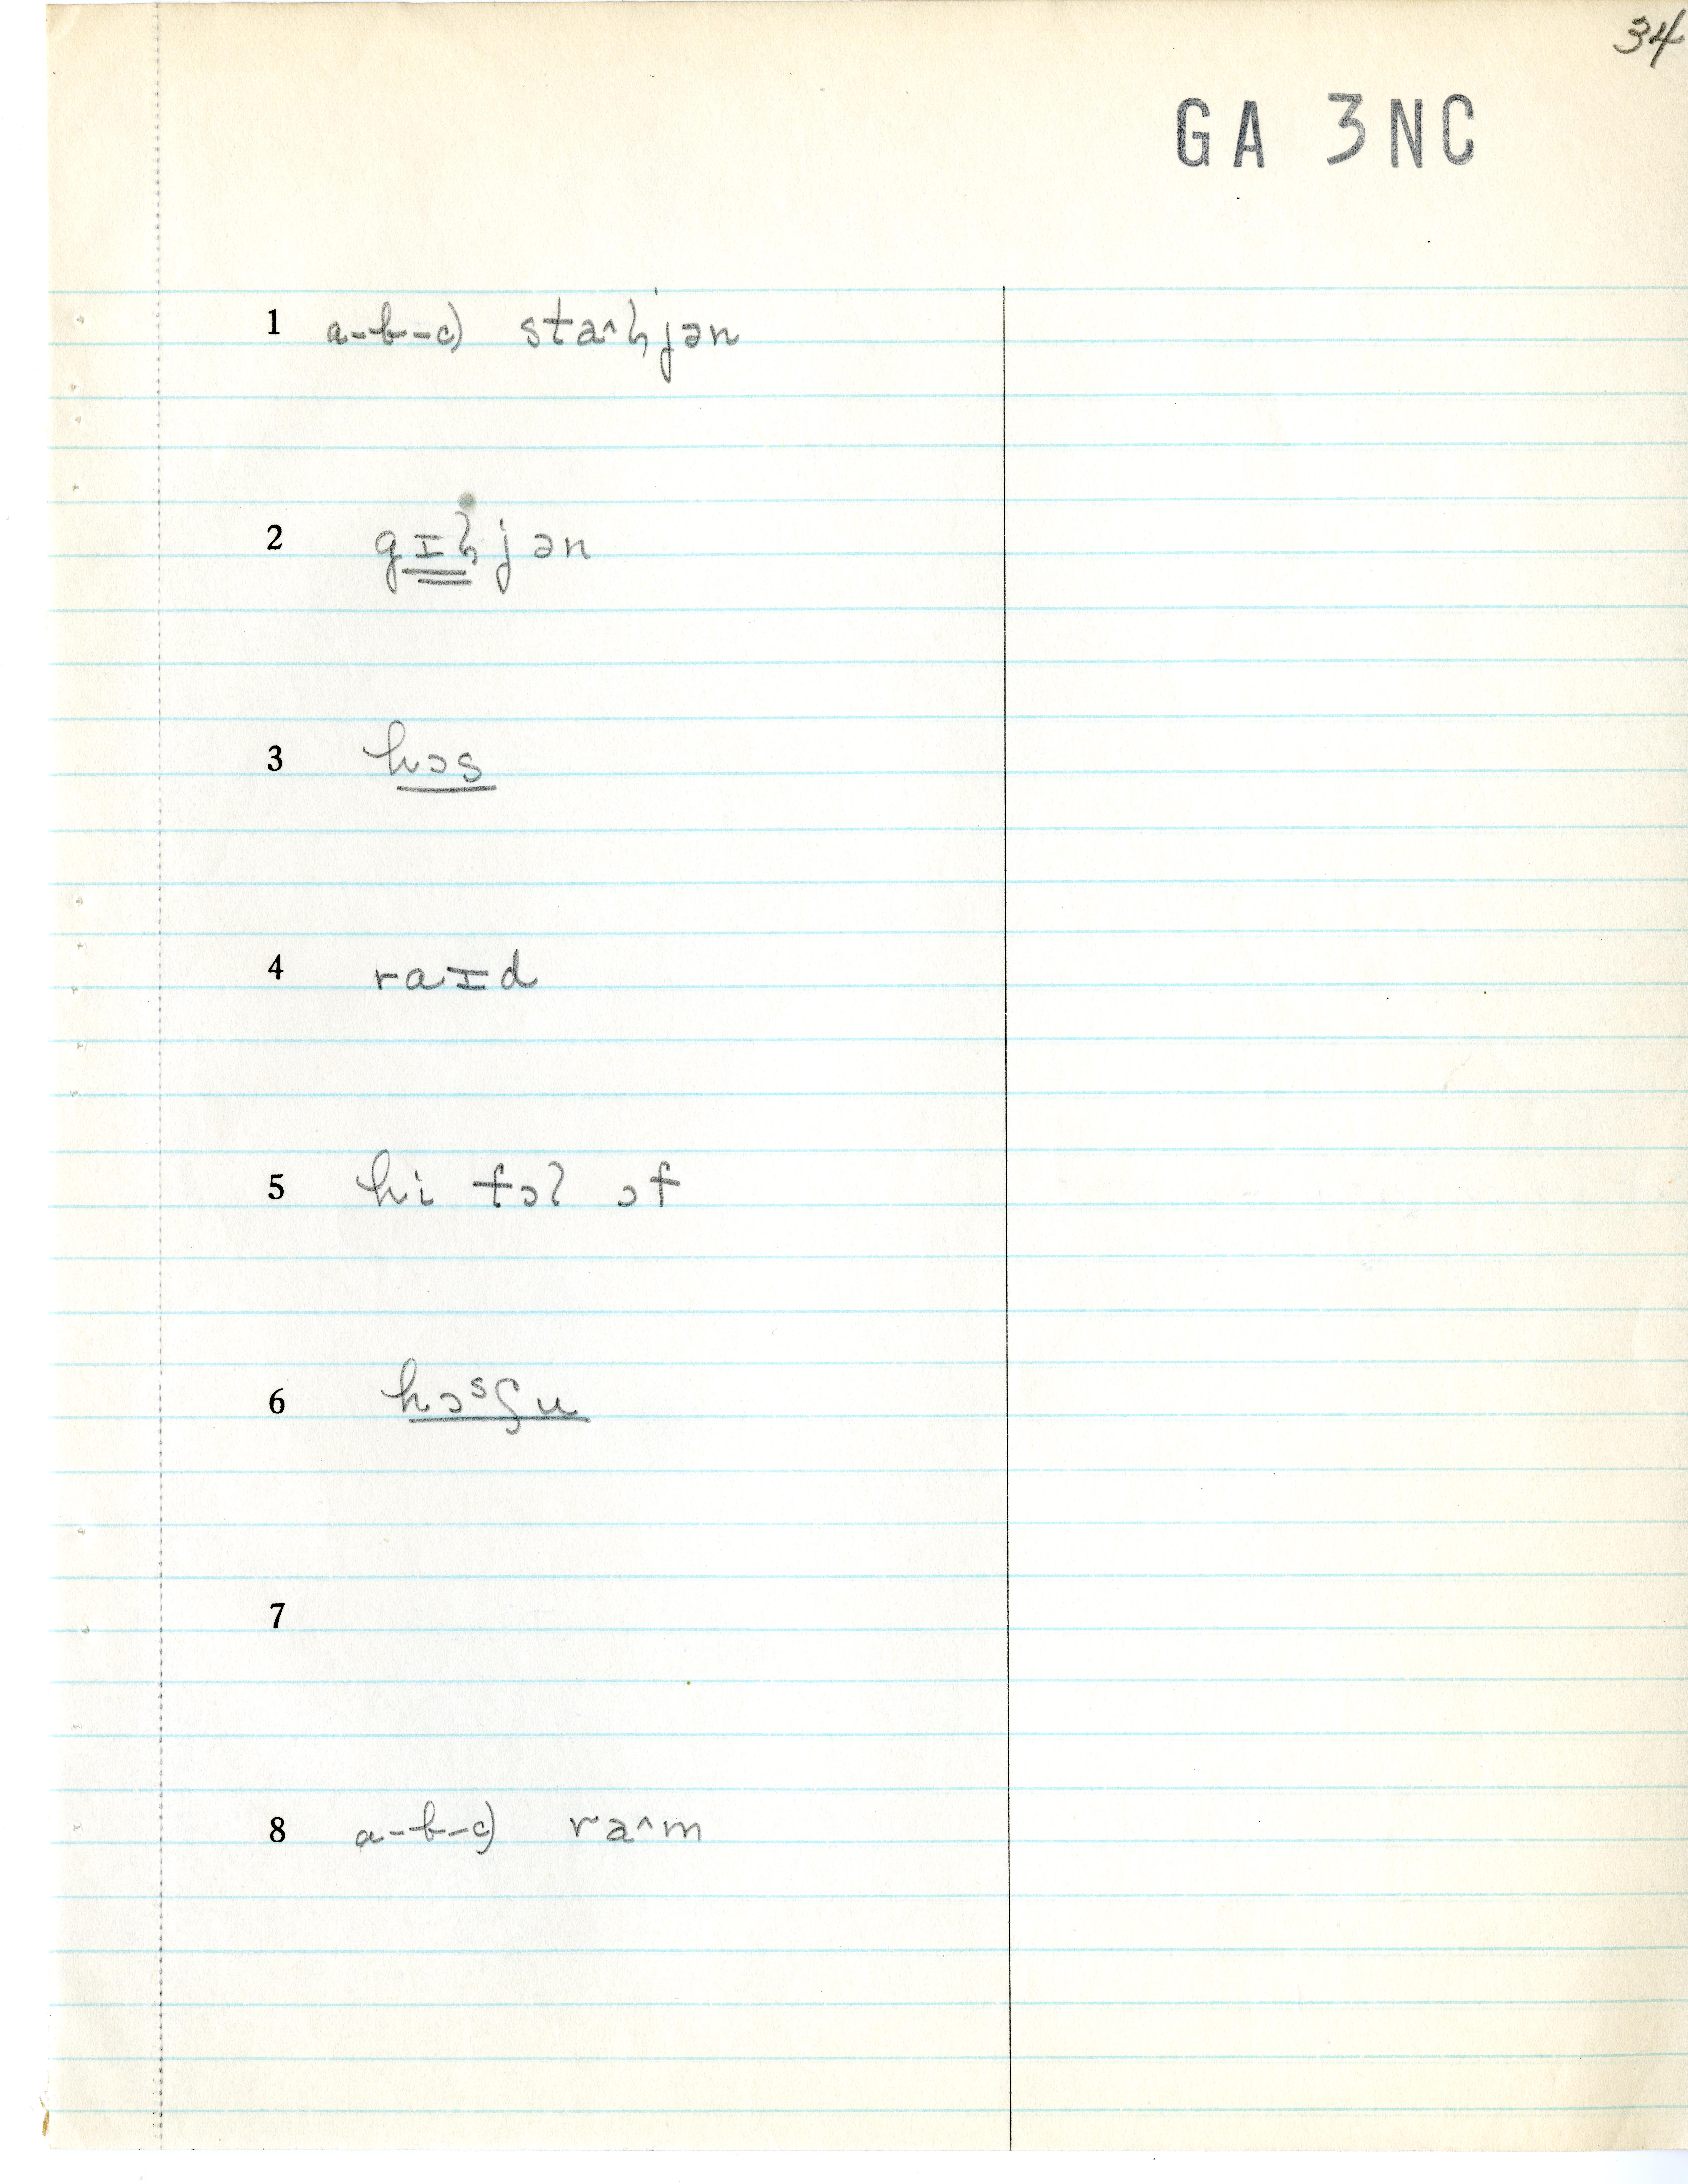 34
GA 3NC
1 a-b-c) sta^ɫjən
2 gɪɫjən
3 hɔs
4 raɪd
5 hi fɔl ɔf
6 hɔˢʃu
7
8 a-b-c) ra^m